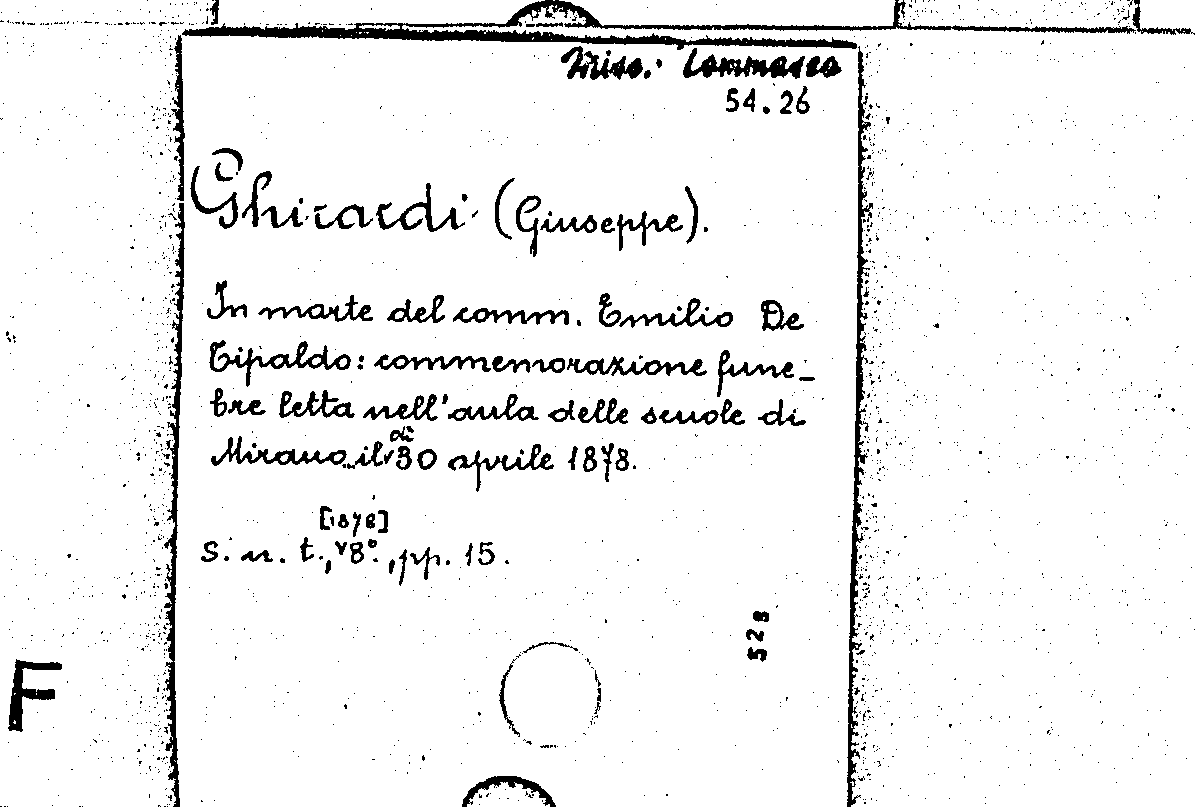 Misc. Tommaseo
54.26
Ghirardi (Giuseppe).
In morte del comm. Emilio De
Tipaldo: commemorazione fune-
bre letta nell'aula delle scuole di
di
Mirano il 30 aprile 1878.
[1878]
S. n. t., 8°., pp. 15.
528
F